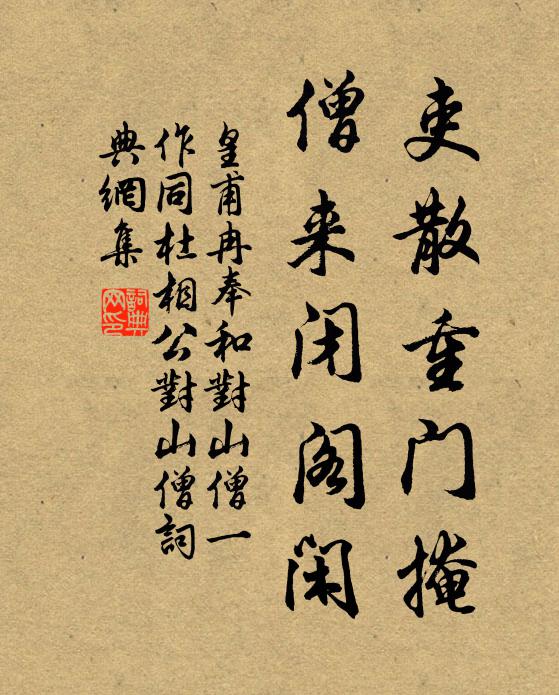 吏散重门掩
僧来闭阁闲
皇甫冉奉和對山僧一
作同杜相公對山僧詞
典網集
詞典
网印